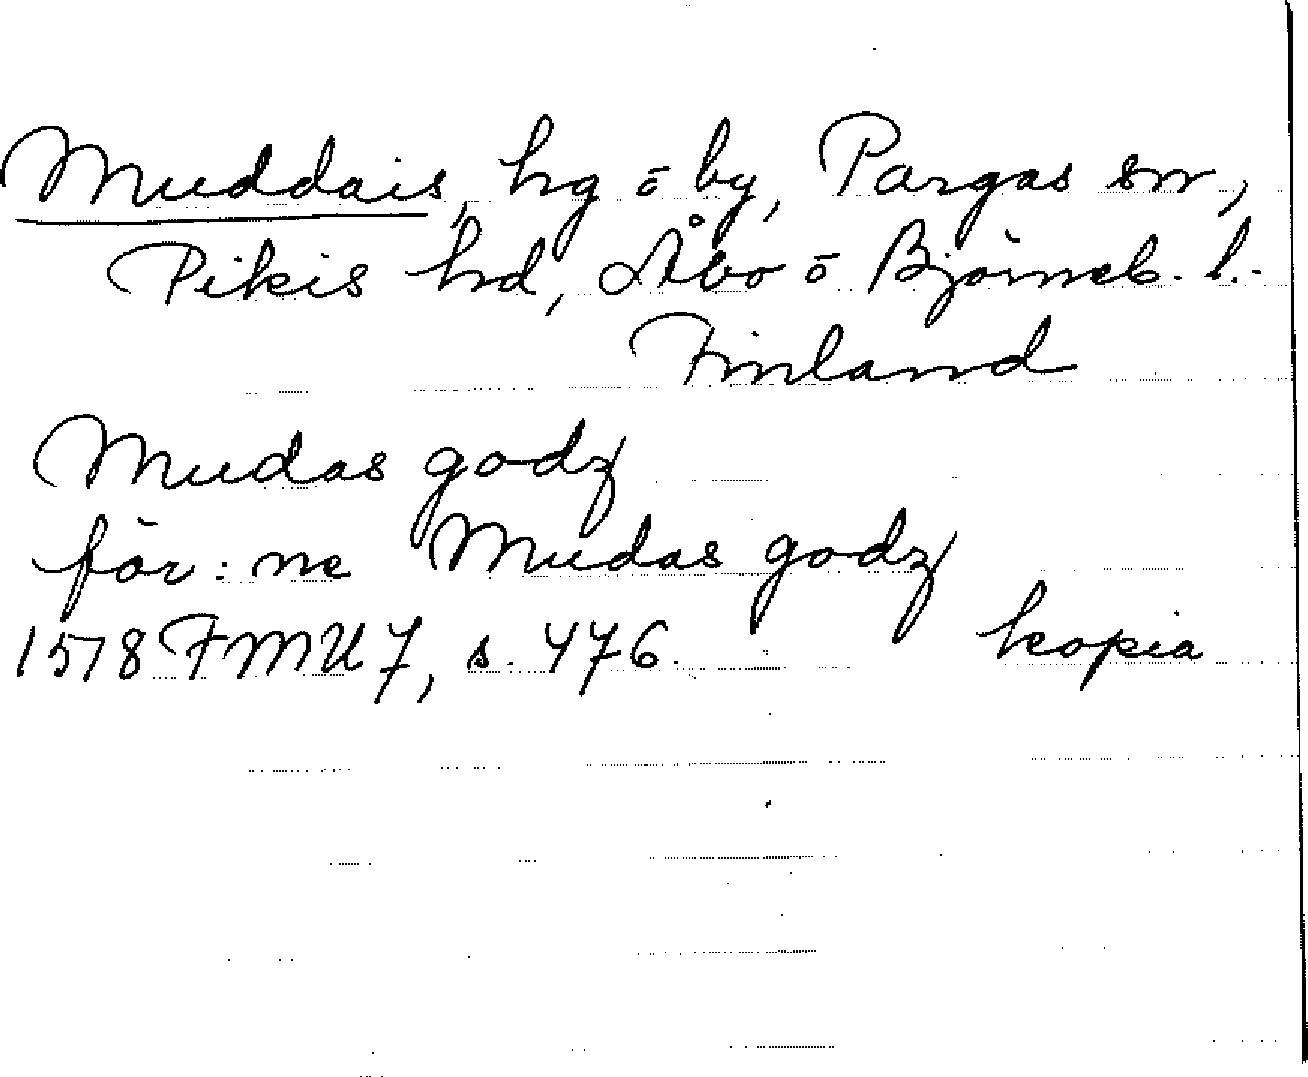 Muddais, hg ō by, Pargas sn,
Pikis hd, Åbo ō Björneb. l.
Finland
Mudas godz
för: ne Mudas godz
1578 FMU 7, s. 476. kopia